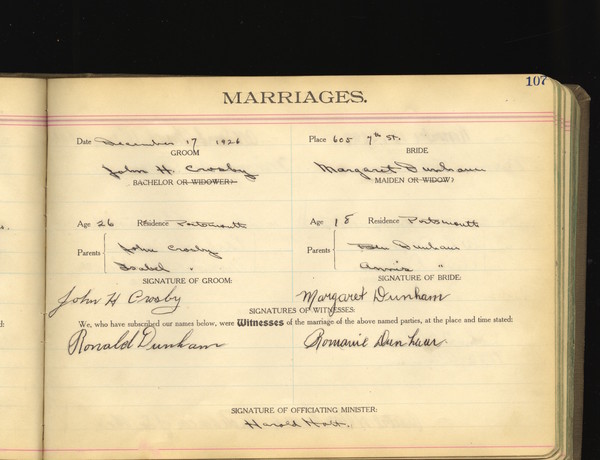 107
MARRIAGES.
Date December 17 1926 Place 605 7th St.
GROOM BRIDE
John H. Crosby Margaret Dunham
BACHELOR OR WIDOWER) MAIDEN OR WIDOW)
Age 26 Residence Portsmouth Age 18 Residence Portsmouth
Parents { John Crosby Parents { Ben Dunham
Isabel " Annie "
SIGNATURE OF GROOM: SIGNATURE OF BRIDE:
John H Crosby Margaret Dunham
SIGNATURES OF WITNESSES:
We, who have subscribed our names below, were Witnesses of the marriage of the above named parties, at the place and time stated:
Ronald Dunham Romaine Dunham
SIGNATURE OF OFFICIATING MINISTER:
Harold Holt.